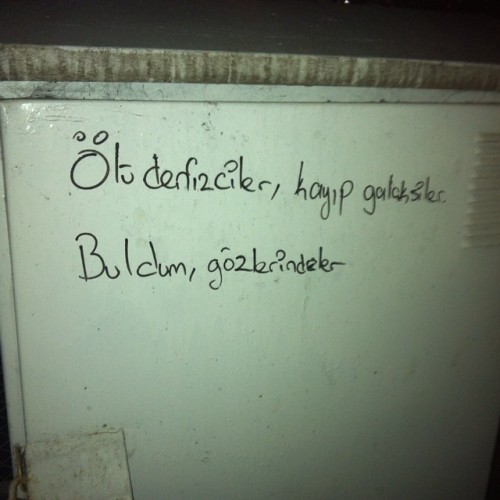 Ölü denizciler, kayıp galaksiler.
Buldum, gözlerindeler